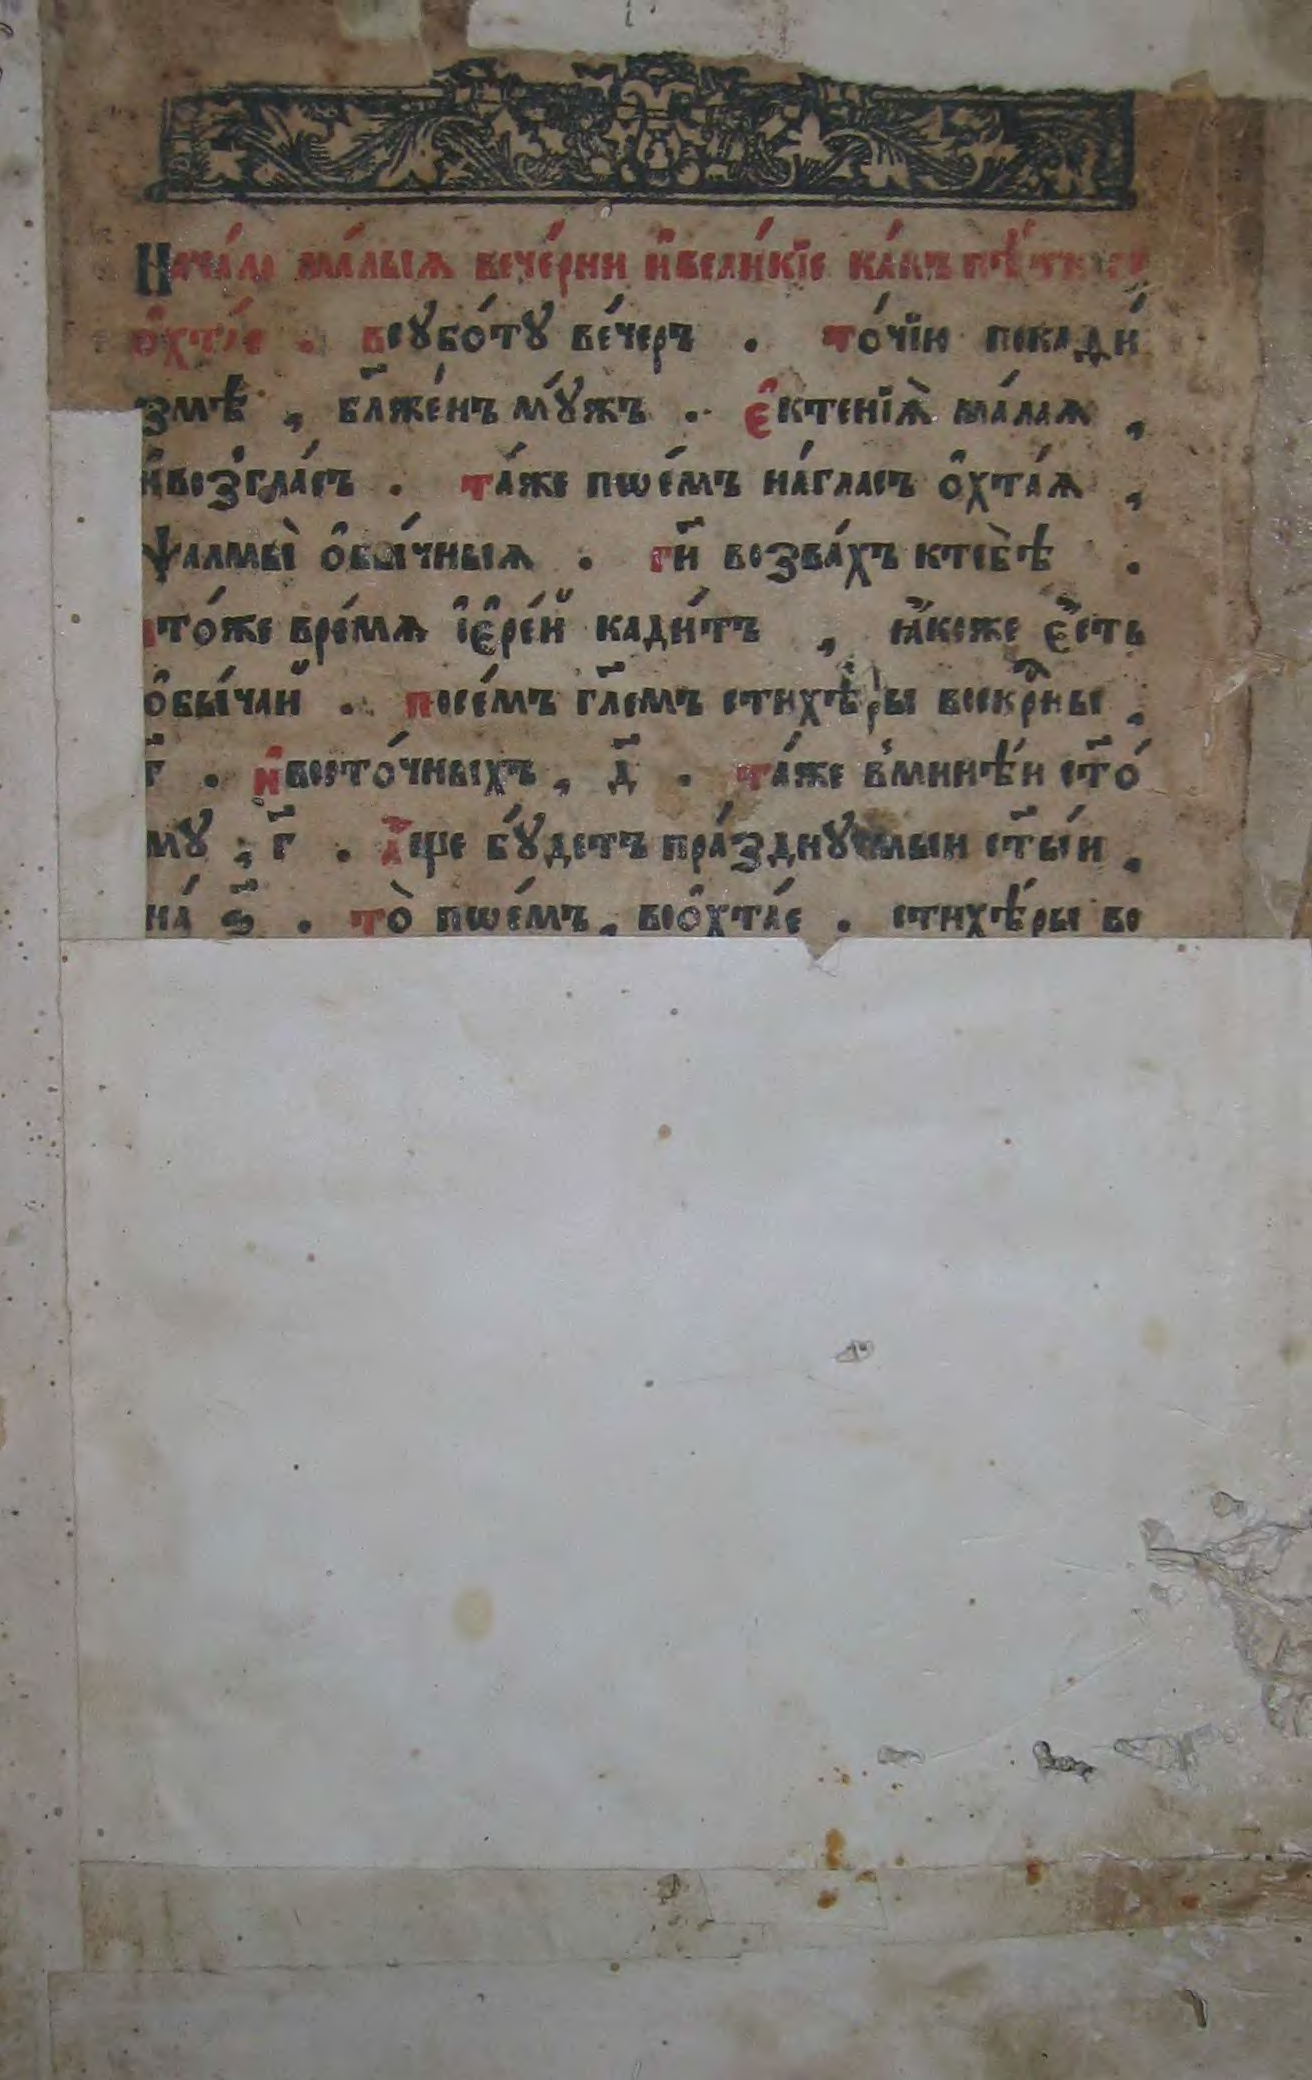 Нача́ло ма́лыѧ вече́рни и҆вели́кїе ка́къ пѣ́ти
о҆хта́е . всубо́ту ве́черъ . то́чїю покади́
змѣ , бл҃же́нъ му́жъ . є҆ктенїѧ̀ ма́лаѧ ,
и҆возгла́съ . та́же пое́мъ на́гласъ о҆хта́ѧ ,
ѱалмы̀ о҆бы́чныѧ . гд҃и возва́хъ ктебѣ̀ .
тоже вре́мѧ і҆е҆ре́й кади́тъ , ꙗ҆́коже є҆́сть
о҆бы́чай . посе́мъ гл҃емъ стихѣ́ры воскр҃ныѧ ,
г҃ . и҆восто́чныхъ , д҃ . та́же вми́нѣи ст҃о́
му , г҃ . а҆́ще бу́детъ пра́зднуемыи ст҃ы́и ,
на́ ѕ҃ . то̀ пѡе́мъ , во҆хта́е . стихѣ́ры во